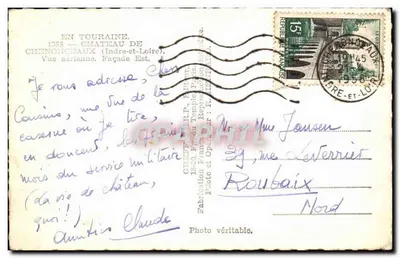 EN TOURAINE.
CHATEAU DE
CHENONCEAUX (Indre-et-Loire).
Vue aérienne. Façade Est.
Je vous adresse, chers
Cousins, une vue de la
caserne où je tire,
en douceur, les
mois du service militaire
(La vie de château,
quoi!)
Amitiés Claude
Photo véritable.
15F
CHENONCEAUX
INDRE-ET-LOIRE
Mr et Mme Jansen
59, rue Leverrier
Roubaix
Nord